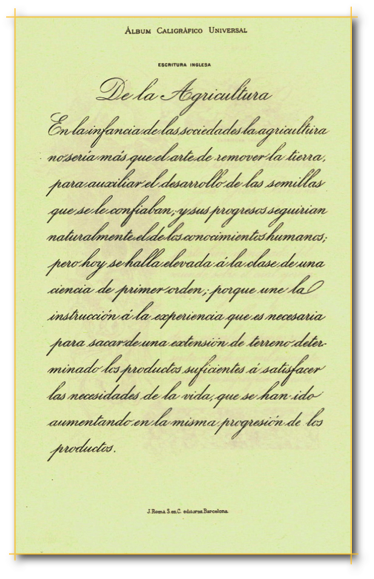 ÁLBUM CALIGRÁFICO UNIVERSAL
ESCRITURA INGLESA
De la Agricultura
En la infancia de las sociedades la agricultura
no sería más que el arte de remover la tierra,
para auxiliar el desarrollo de las semillas
que se le confiaban, y sus progresos seguirian
naturalmente el de los conocimientos humanos;
pero hoy se halla elevada á la clase de una
ciencia de primer orden; porque une la
instrucción á la experiencia que es necesaria
para sacar de una extensión de terreno deter-
minado los productos suficientes á satisfacer
las necesidades de la vida, que se han ido
aumentando en la misma progresión de los
productos.
J. Roma S. en C. editores Barcelona.